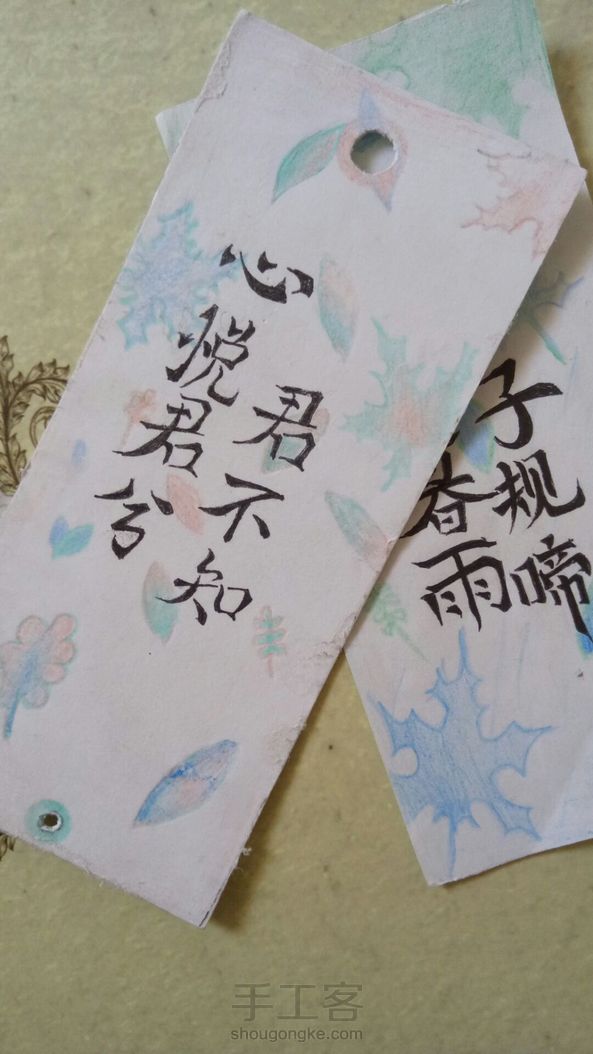 心悦君兮
君不知
春雨
子规啼
手工客
shougongke.com